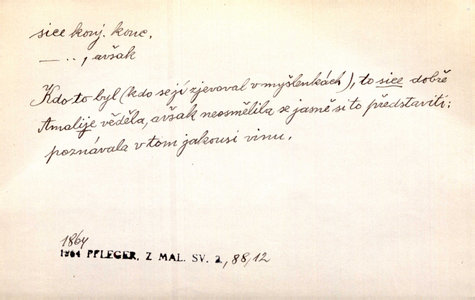 sice konj. konc.
— . . , avšak
Kdo to byl (kdo se jí zjevoval v myšlenkách), to sice dobře
Amalije věděla, avšak neosmělila se jasně si to představiti;
poznávala v tom jakousi vinu.
1864
1864 PFLEGER, Z MAL. SV. 2, 88/12